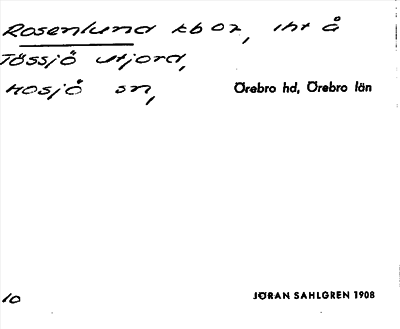 Rosenlund tb oz, iht å
Tössjö utjord,
Mosjö sn, Örebro hd, Örebro län
10 JÖRAN SAHLGREN 1908